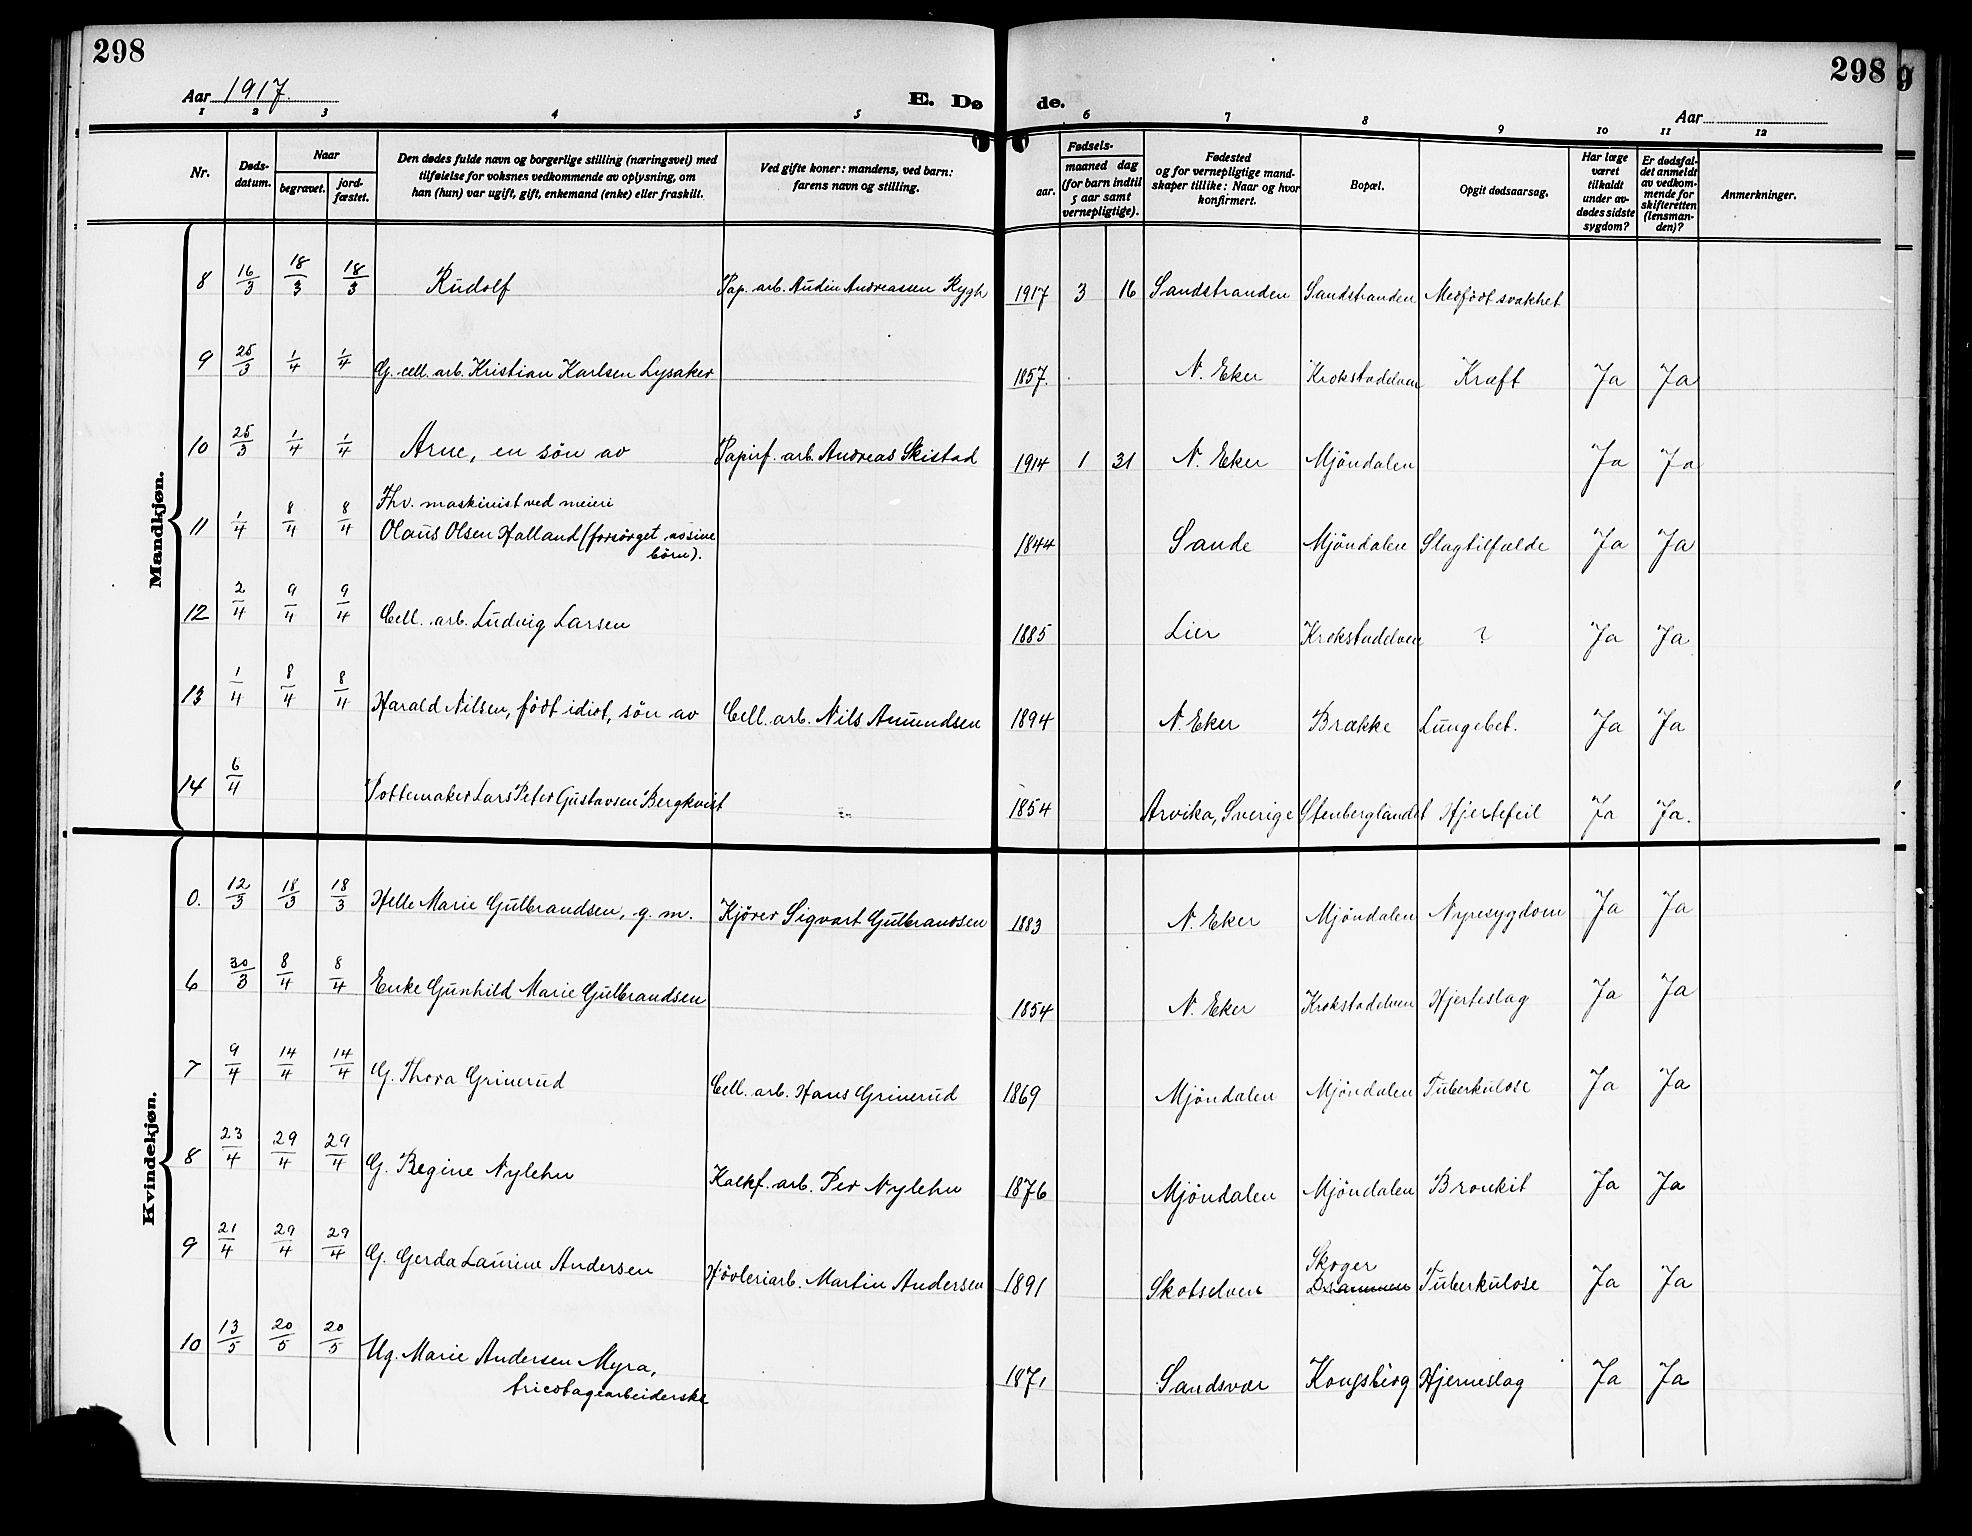 298
298
Aar 1917.
E. Dø de.
Aar
1 2 3 4 5 6 7 8 9 10 11 12
Nr.
Døds-
datum.
Naar
begravet.
jord-
fæstet.
Den dødes fulde navn og borgerlige stilling (næringsvei) med
tilføielse for voksnes vedkommende av oplysning, om
han (hun) var ugift, gift, enkemand (enke) eller fraskilt.
Ved gifte koner: mandens, ved barn:
farens navn og stilling.
Fødsels-
aar.
maaned dag
(for barn indtil
5 aar samt
vernepligtige).
Fødested
og for vernepligtige mand-
skaper tillike: Naar og hvor
konfirmert.
Bopæl.
Opgit dødsaarsag.
Har læge
været
tilkaldt
under av-
dødes sidste
sygdom?
Er dødsfal-
det anmeldt
av vedkom-
mende for
skifteretten
(lensman-
den)?
Anmerkninger.
Mandkjøn.
8 16/3 18/3 18/3 Rudolf Pap. arb. Audin Andreassen Rygh 1917 3 16 Sandstranden Sandstranden Medfödt svakhet
9 25/3 1/4 1/4 G. cell. arb. Kristian Karlsen Lysaker 1857 N. Eker Krokstadelven Kræft Ja Ja
10 25/3 1/4 1/4 Arne, en sön av Papirf. arb. Andreas Skistad 1914 1 31 N. Eker Mjöndalen Ja Ja
Fhv. maskinist ved meieri
11 1/4 8/4 8/4 Olaus Olsen Halland (forsörget av sine 1844 Sande Mjöndalen Slagtilfælde Ja Ja
börn).
12 2/4 9/4 9/4 Cell. arb. Ludvig Larsen 1885 Lier Krokstadelven ? Ja Ja
13 1/4 8/4 8/4 Harald Nilsen, födt idiot, sön av Cell. arb. Nils Amundsen 1894 N. Eker Brække Lungebet. Ja Ja
14 6/4 Pottemaker Lars Peter Gustavsen Bergkvist 1854 Arvika, Sverige Stenberglandet Hjertefeil Ja Ja.
Kvindekjøn.
0. 12/3 18/3 18/3 Helle Marie Gulbrandsen, g. m. Kjörer Sigvart Gulbrandsen 1883 N. Eker Mjöndalen Nyresygdom Ja Ja
6 30/3 8/4 8/4 Enke Gunhild Marie Gulbrandsen 1854 N. Eker Krokstadelven Hjerteslag Ja Ja
7 9/4 14/4 14/4 G. Thora Grinerud Cell. arb. Hans Grinerud 1869 Mjöndalen Mjöndalen Tuberkulose Ja Ja
8 23/4 29/4 29/4 G. Regine Nylehn Kalkf. arb. Per Nylehn 1876 Mjöndalen Mjöndalen Bronkit Ja Ja
Skoger
9 21/4 29/4 29/4 G. Gerda Laurine Andersen Hövleriarb. Martin Andersen 1891 Skotselven Drammen Tuberkulose Ja Ja
10 13/5 20/5 20/5 Ug. Marie Andersen Myra, 1871 Sandsvær Kongsberg Hjerneslag Ja Ja
tricotagearbeiderske